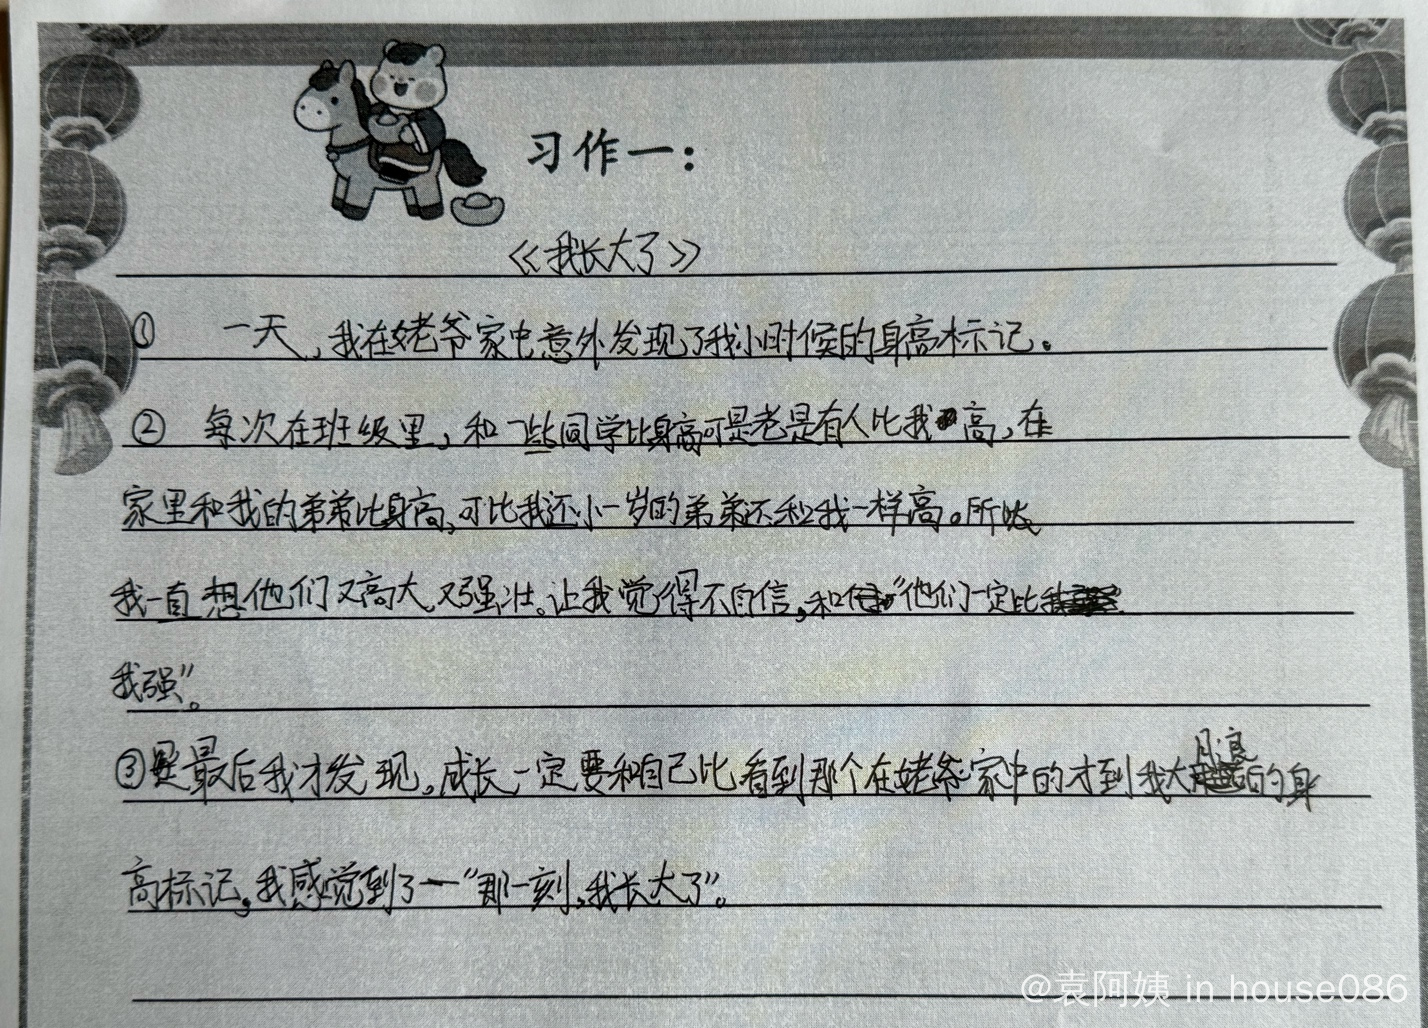 习作一：
《我长大了》
① 一天，我在姥爷家中意外发现了我小时候的身高标记。
② 每次在班级里，和一些同学比身高可是老是有人比我高，在
家里和我的弟弟比身高，可比我还小一岁的弟弟还和我一样高。所以
我一直想他们又高大又强壮。让我觉得不自信，和"他们一定比
我强"。
③最后我才发现。成长一定要和自己比看到那个在姥爷家中的才到我大腿的身
高标记，我感觉到了一"那一刻，我长大了"。
@袁阿姨 in house086